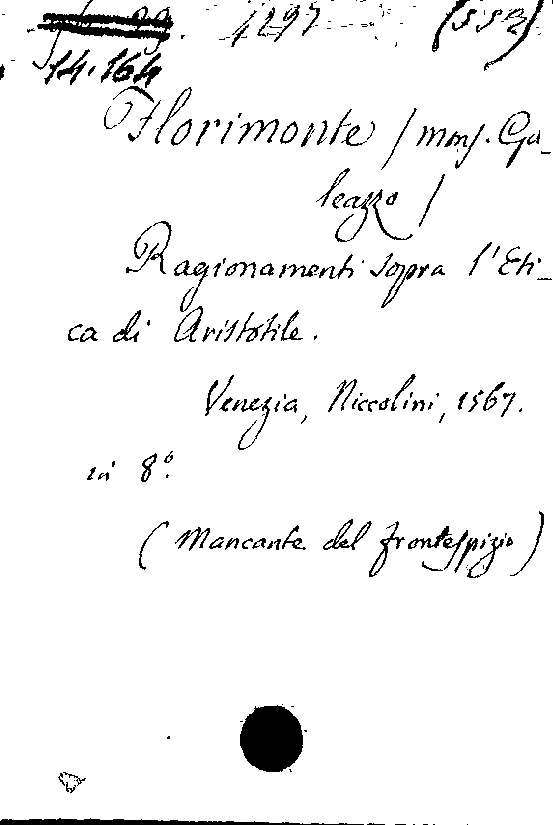 4297 (SSR)
14.164
Florimonte / mons. Ga-
leazzo /
Ragionamenti sopra l'Eti-
ca di Aristotile.
Venezia, Niccolini, 1567.
in 8º.
(Mancante del frontespizio)